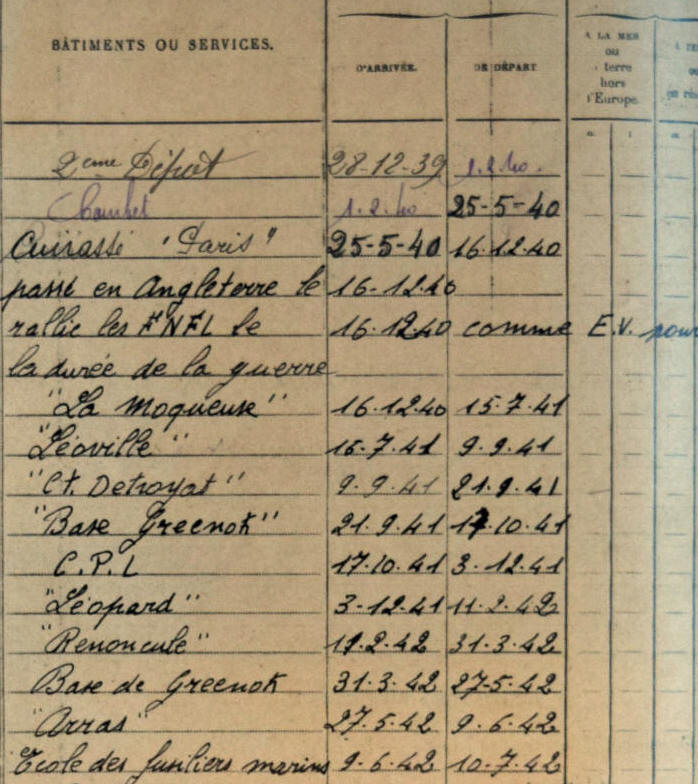 BÂTIMENTS OU SERVICES. D'ARRIVÉE. DE DÉPART A LA MER ou terre hors d'Europe.
2eme Dépôt 28-12-39 1.2.40.
1.2.40 25-5-40
Cuirassé "Paris" 25-5-40 16.12.40
passé en Angleterre le 16-12.40
rallie les FNFL le 16.12.40 comme E.V. pour
la durée de la guerre
"La Moqueuse" 16.12.40 15.7.41
"Léoville" 15.7.41 9.9.41
"Ct. Detroyat" 9.9.41 21.9.41
"Base Greenok" 21.9.41 17.10.41
C.P.L 17.10.41 3-12.41
"Léopard" 3-12.41 11.2.42
"Renoncule" 11.2.42 31.3.42
Base de Greenok 31.3.42 27-5.42
"Arras" 27.5.42 9.6.42
Ecole des fusiliers marins 9-6.42 10.7.42